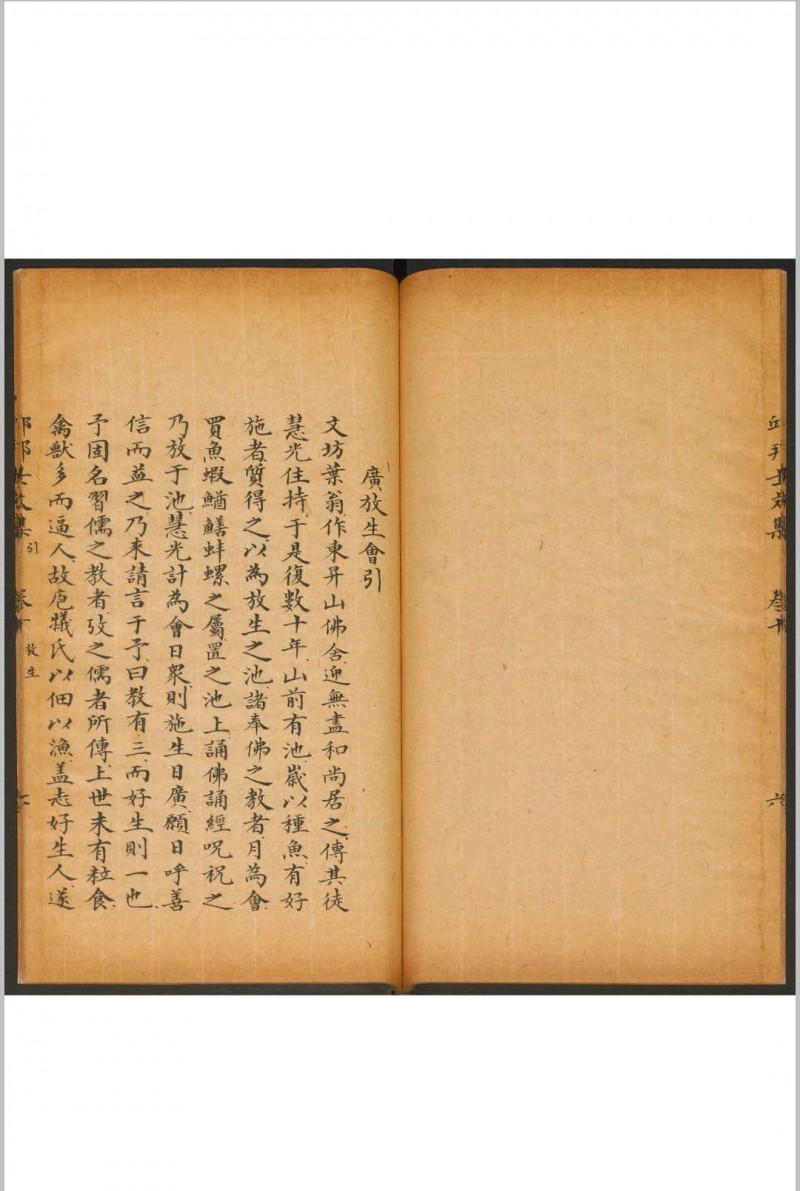 廣放生會引
文坊葉翁作東昇山佛舍迎無盡和尚居之傳其徒
慧光住持于是復數十年山前有池歲以種魚有好
施者質得之以為放生之池諸奉佛之教者月為會
買魚蝦鰌鱔蚌螺之屬置之池上誦佛誦經呪祝之
乃放于池慧光計為會日衆則施生日廣願日呼善
信而益之乃來請言于予曰教有三而好生則一也
予固名習儒之教者攷之儒者所傳上世未有粒食
禽獸多而逼人故庖犧氏以佃以漁蓋志好生人遂
引
放生
六